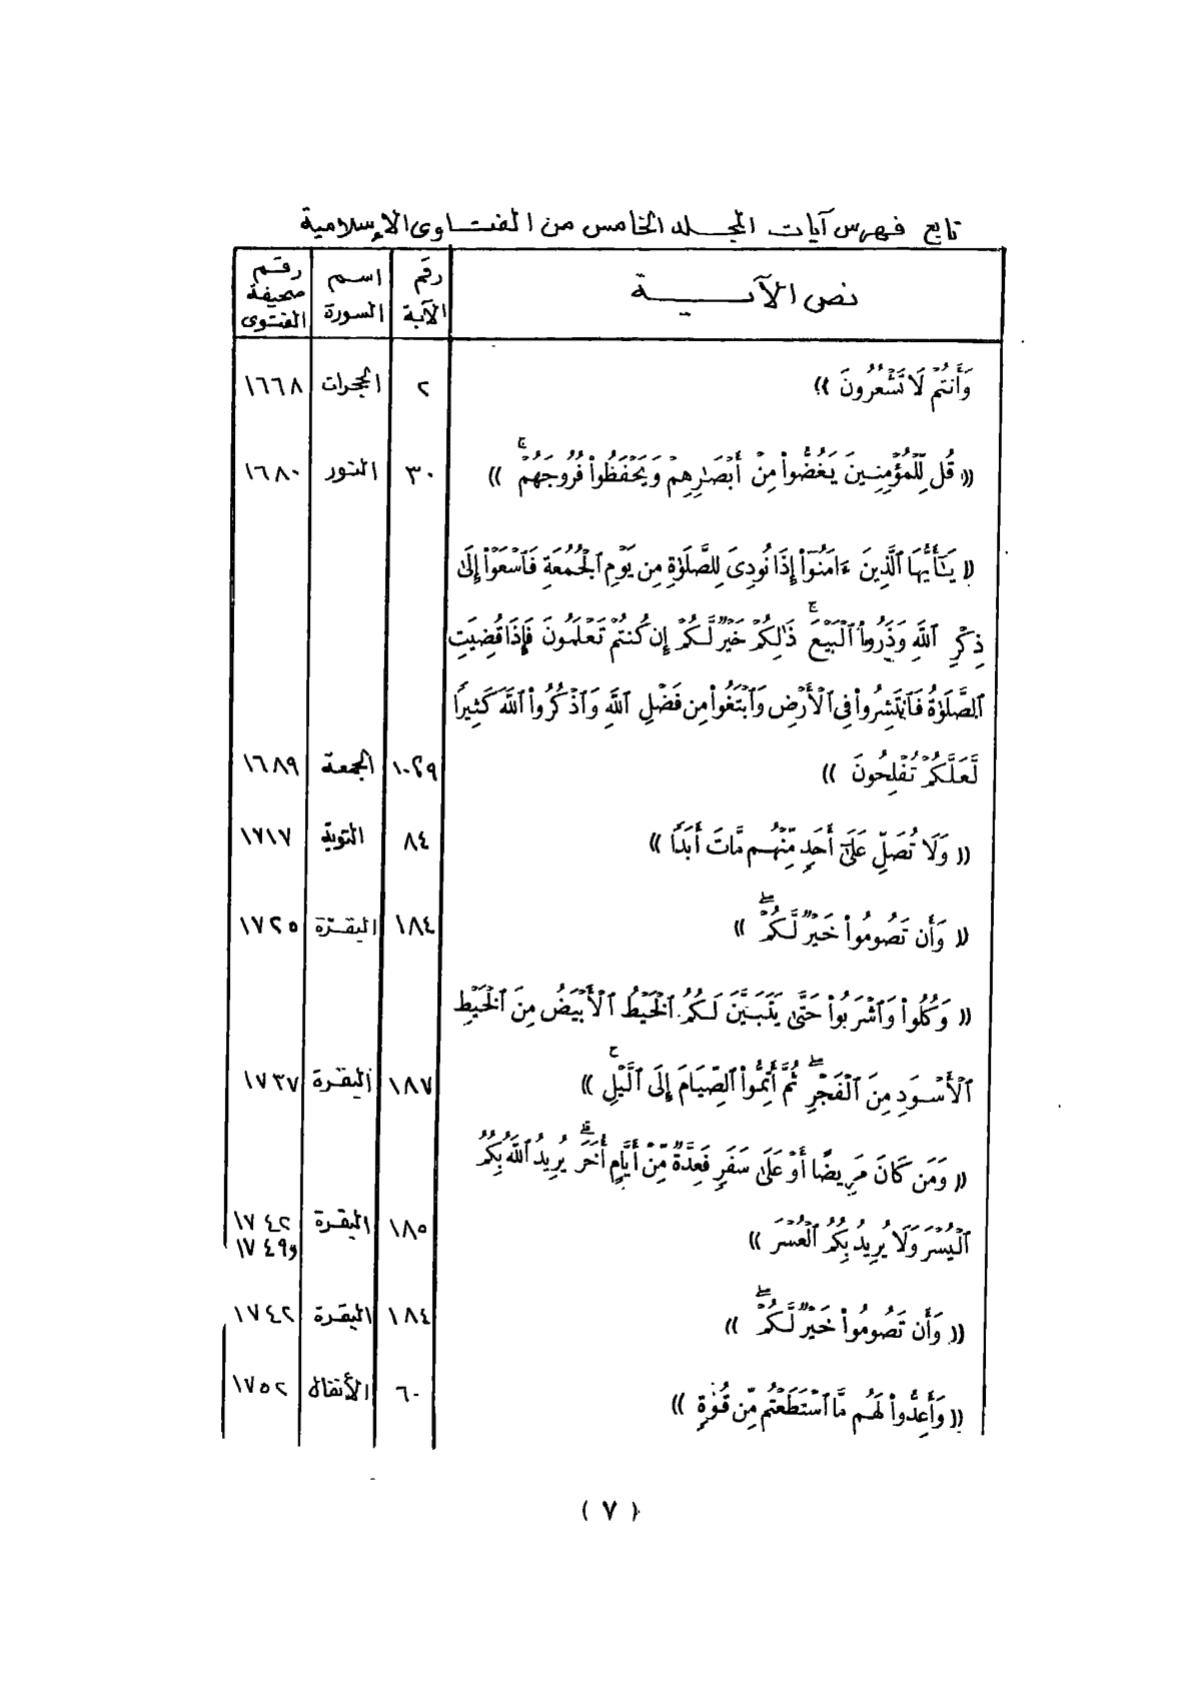 تابع فهرس آيات المجلد الخامس من الفتاوى الإسلامية
نص الآية رقم الآية اسم السورة رقم صحيفة الفتوى
وَأَنتُمْ لَا تَشْعُرُونَ )) ٢ الحجرات ١٦٦٨
(( قُل لِّلْمُؤْمِنِينَ يَغُضُّواْ مِنْ أَبْصَٰرِهِمْ وَيَحْفَظُواْ فُرُوجَهُمْ ۚ )) ٣٠ النور ١٦٨٠
(( يَٰٓأَيُّهَا ٱلَّذِينَ ءَامَنُوٓاْ إِذَا نُودِىَ لِلصَّلَوٰةِ مِن يَوْمِ ٱلْجُمُعَةِ فَٱسْعَوْاْ إِلَىٰ
ذِكْرِ ٱللَّهِ وَذَرُواْ ٱلْبَيْعَ ۚ ذَٰلِكُمْ خَيْرٌ لَّكُمْ إِن كُنتُمْ تَعْلَمُونَ فَإِذَا قُضِيَتِ
ٱلصَّلَوٰةُ فَٱنتَشِرُواْ فِى ٱلْأَرْضِ وَٱبْتَغُواْ مِن فَضْلِ ٱللَّهِ وَٱذْكُرُواْ ٱللَّهَ كَثِيرًا
لَّعَلَّكُمْ تُفْلِحُونَ )) ١٠،٩ الجمعة ١٦٨٩
(( وَلَا تُصَلِّ عَلَىٰٓ أَحَدٍ مِّنْهُم مَّاتَ أَبَدًا )) ٨٤ التوبة ١٧١٧
(( وَأَن تَصُومُواْ خَيْرٌ لَّكُمْ ۖ )) ١٨٤ البقرة ١٧٢٥
(( وَكُلُواْ وَٱشْرَبُواْ حَتَّىٰ يَتَبَيَّنَ لَكُمُ ٱلْخَيْطُ ٱلْأَبْيَضُ مِنَ ٱلْخَيْطِ
ٱلْأَسْوَدِ مِنَ ٱلْفَجْرِ ۖ ثُمَّ أَتِمُّواْ ٱلصِّيَامَ إِلَى ٱلَّيْلِ ۚ )) ١٨٧ البقرة ١٧٣٧
(( وَمَن كَانَ مَرِيضًا أَوْ عَلَىٰ سَفَرٍ فَعِدَّةٌ مِّنْ أَيَّامٍ أُخَرَ ۗ يُرِيدُ ٱللَّهُ بِكُمُ
ٱلْيُسْرَ وَلَا يُرِيدُ بِكُمُ ٱلْعُسْرَ )) ١٨٥ البقرة ١٧٤٢
و١٧٤٩
(( وَأَن تَصُومُواْ خَيْرٌ لَّكُمْ ۖ )) ١٨٤ البقرة ١٧٤٢
(( وَأَعِدُّواْ لَهُم مَّا ٱسْتَطَعْتُم مِّن قُوَّةٍ )) ٦٠ الأنفال ١٧٥٢
( ٧ )